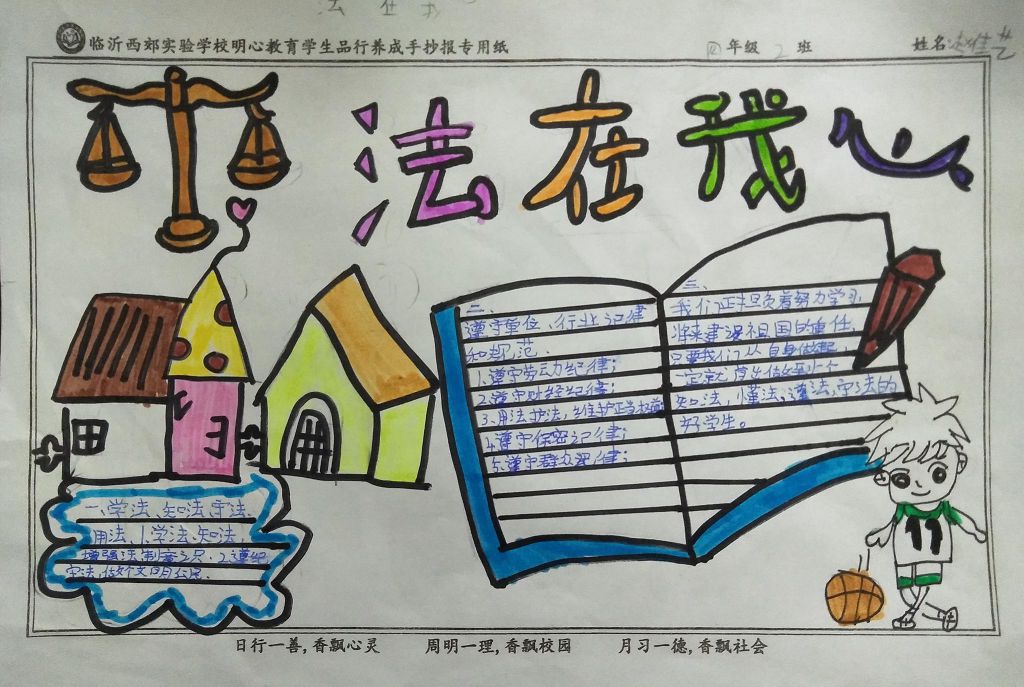 法在我
临沂西郊实验学校明心教育学生品行养成手抄报专用纸 四年级 2 班 姓名:
法在我心
一、学法、知法、守法、
用法、1.学法、知法,
增强法制意识、2.遵纪
守法,做个文明公民.
二、
遵守单位、行业记律
和规范.
1.遵守劳动纪律;
2.遵守财经纪律;
3.用法护法,维护正当权益
4.遵守保密记律;
5.遵守群众纪律;
三、
我们正担负着努力学习
将来建设祖国的重任,
只要我们从自身做起,
一定就
知法,懂法,遵法,守法的
好学生。
11
日行一善,香飘心灵 周明一理,香飘校园 月习一德,香飘社会